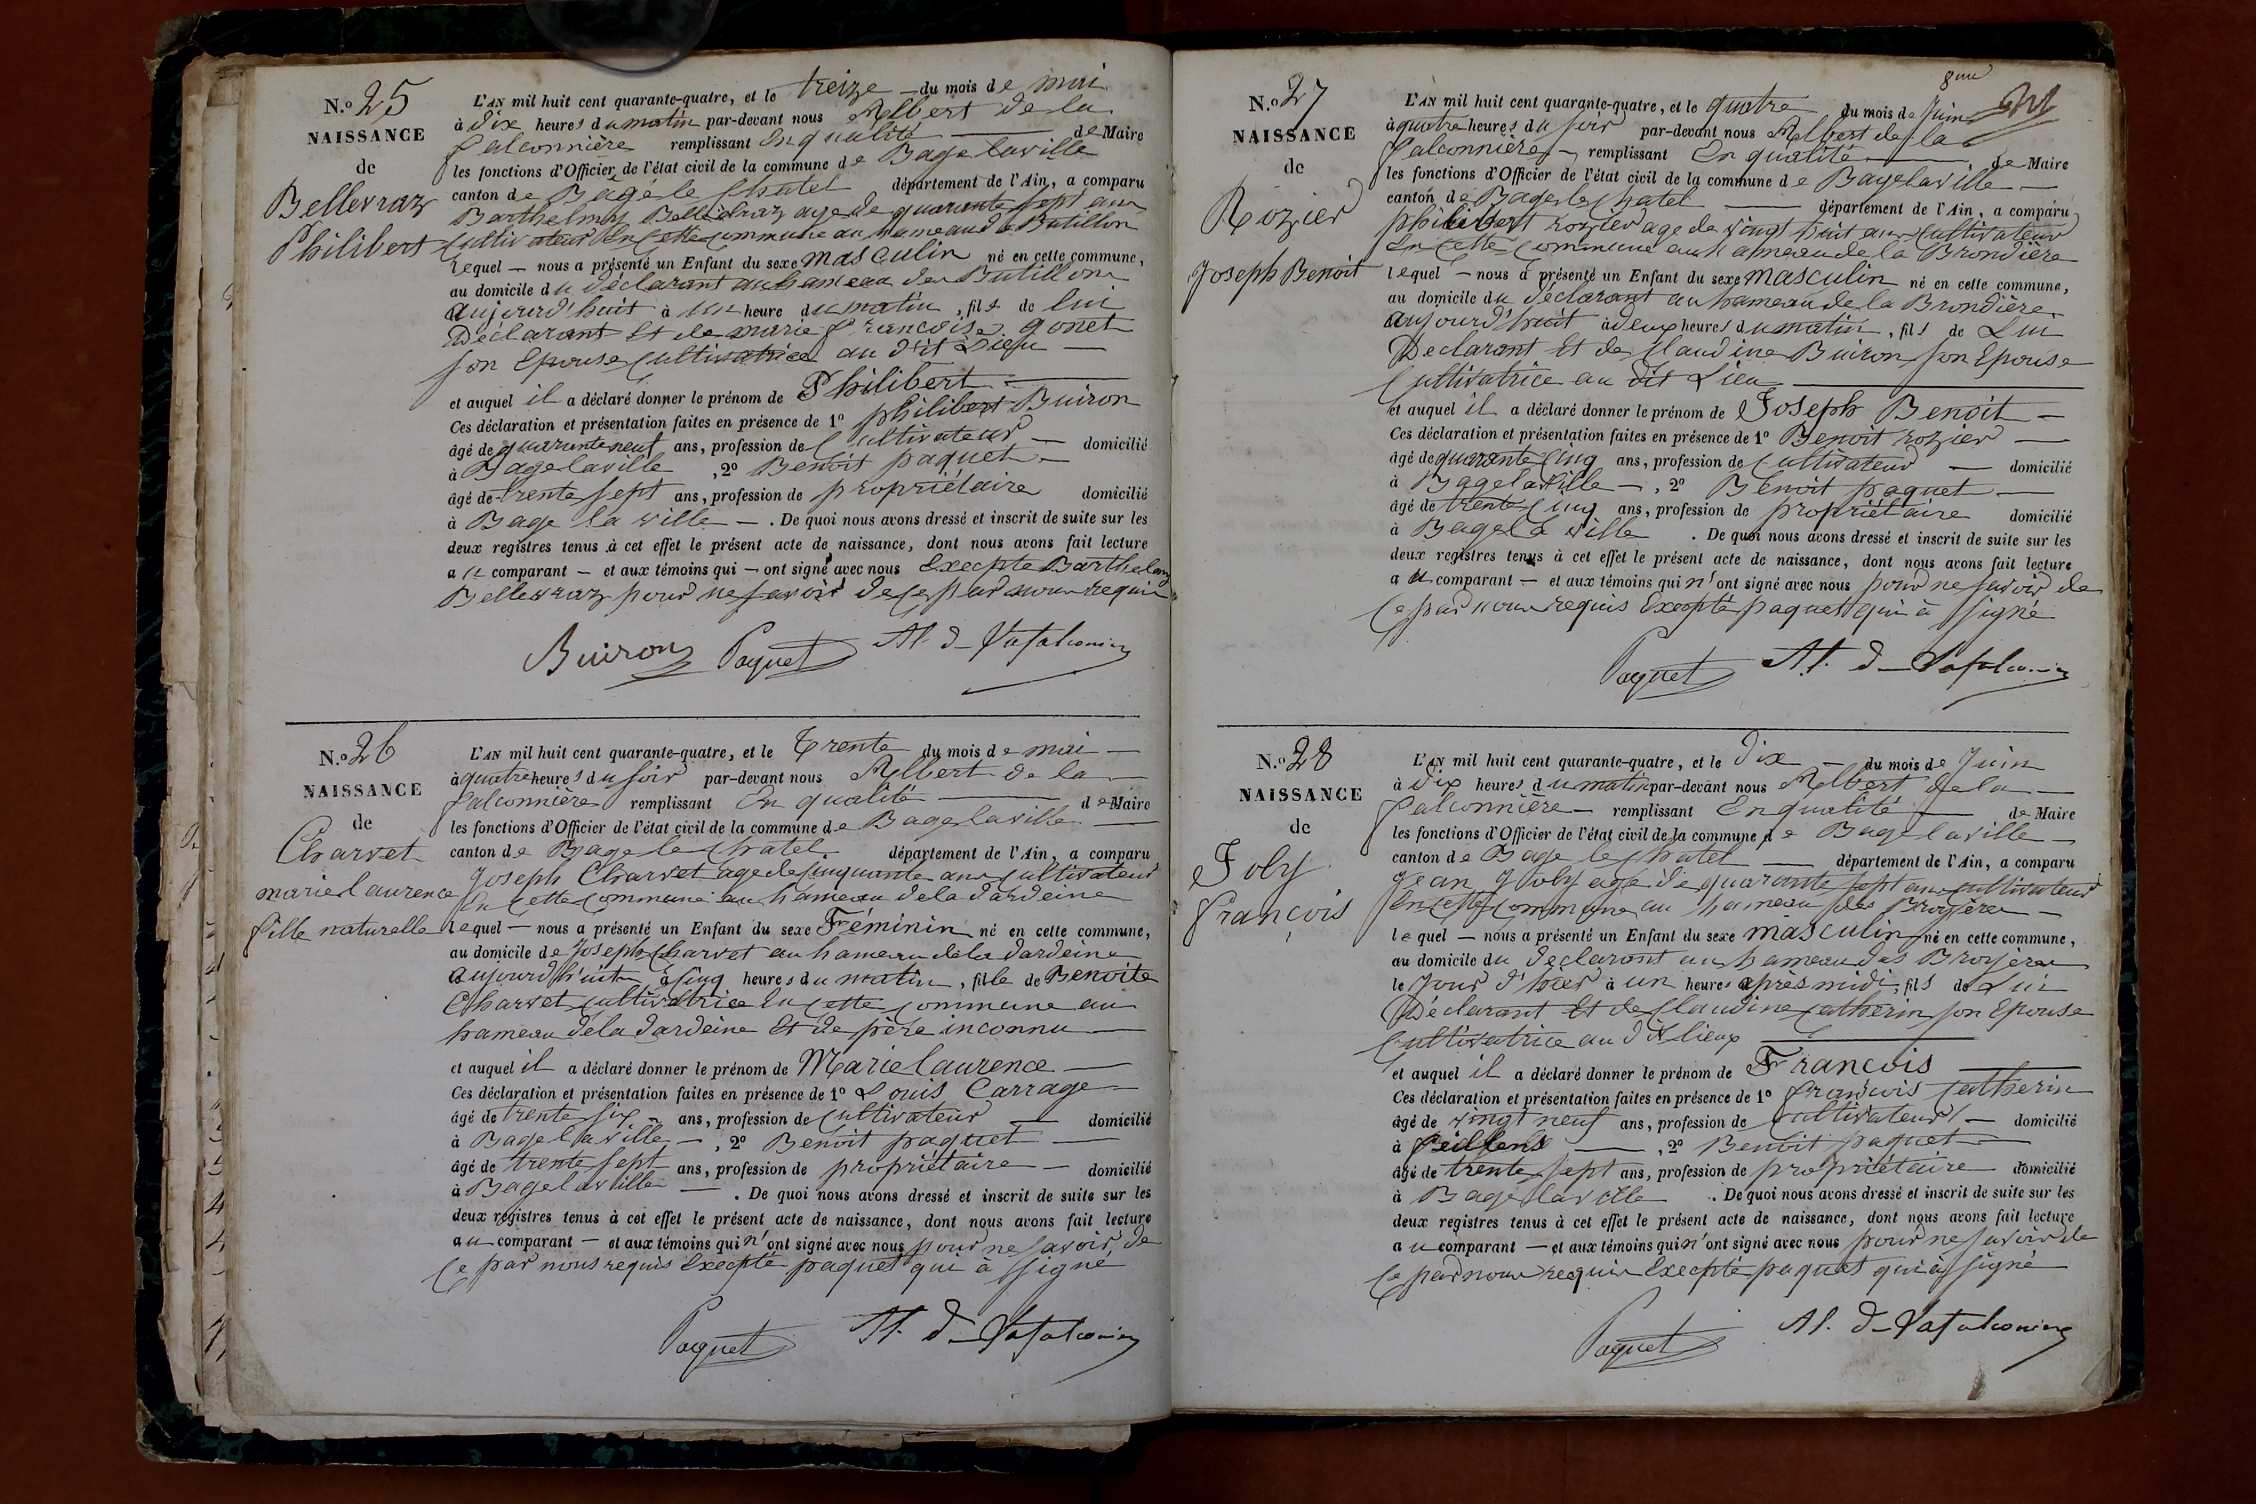 N.º 25
NAISSANCE
de
Bellevraz
Philibert
L'AN mil huit cent quarante-quatre, et le treize — du mois de mai
à dix heures du matin par-devant nous Albert de la
falconnière remplissant En qualité — de Maire
les fonctions d'Officier de l'état civil de la commune de Bage laville
canton de Bâgé le Chatel département de l'Ain, a comparu
Barthelmy age de quarante sept ans
Cultivateur En cette commune au hameau de Butillon
lequel — nous a présenté un Enfant du sexe masculin né en cette commune,
au domicile du déclarant au hameau de Butillon
aujourd'huit à un heure du matin, fils de lui
Déclarant Et de marie françoise gonet
son Epouse Cultivatrice au dit Lieu —
et auquel il a déclaré donner le prénom de Philibert —
Ces déclaration et présentation faites en présence de 1º philibert Buiron
âgé de quarante neuf ans, profession de Cultivateur — domicilié
à Bagelaville , 2º Benoit paquet —
âgé de trente sept ans, profession de propriétaire domicilié
à Bage la ville — . De quoi nous avons dressé et inscrit de suite sur les
deux registres tenus à cet effet le présent acte de naissance, dont nous avons fait lecture
au comparant — et aux témoins qui — ont signé avec nous Excepté Barthelmy
Bellevraz pour ne savoir de ce par nous requis
Buiron Paquet Al. de Lafalconnière
N.º 26
NAISSANCE
de
Charvet
marie laurence
fille naturelle
L'AN mil huit cent quarante-quatre, et le Trente du mois de mai —
à quatre heures du soir par-devant nous Albert de la —
falconnière remplissant En qualité — de Maire
les fonctions d'Officier de l'état civil de la commune de Bagelaville —
canton de Bage le Chatel département de l'Ain, a comparu
Joseph Charvet age de Cinquante ans Cultivateur
En cette commune au hameau dela dardeine
lequel — nous a présenté un Enfant du sexe Fréminin né en cette commune,
au domicile de Joseph Charvet au hameau dela dardeine
aujourdhuit à Cinq heures du matin, fille de Benoite
Charvet Cultivatrice En cette commune au
hameau dela dardeine Et de père inconnu —
et auquel il a déclaré donner le prénom de Marie laurence —
Ces déclaration et présentation faites en présence de 1º Louis Carrage —
âgé de trente six — ans, profession de Cultivateur — domicilié
à Bagelaville — , 2º Benoit paquet —
âgé de trente sept ans, profession de propriétaire — domicilié
à Bagelaville — . De quoi nous avons dressé et inscrit de suite sur les
deux registres tenus à cet effet le présent acte de naissance, dont nous avons fait lecture
au comparant — et aux témoins qui n'ont signé avec nous pour ne savoir de
ce par nous requis Excepté paquet qui à signé
Paquet Al. de Lafalconnière
8me
N.º 27
NAISSANCE
de
Rozier
Joseph Benoit
L'AN mil huit cent quarante-quatre, et le quatre du mois de Juin
à quatre heures du soir par-devant nous Albert de la
falconnière — remplissant En qualité — de Maire
les fonctions d'Officier de l'état civil de la commune de Bagelaville —
canton de Bage le Chatel — département de l'Ain, a comparu
philibert rozier age de vingt huit ans Cultivateur
En cette commune au hameau de la Brondière
lequel — nous a présenté un Enfant du sexe masculin né en cette commune,
au domicile du déclarant au hameau de la Brondière
aujourd'huit à deux heures du matin, fils de Lui
Declarant Et de Claudine Buiron son Epouse
Cultivatrice au dit Lieu —
et auquel il a déclaré donner le prénom de Joseph Benoit —
Ces déclaration et présentation faites en présence de 1º Benoit rozier —
âgé de quarante Cinq ans, profession de Cultivateur — domicilié
à Bagelaville — , 2º Benoit paquet —
âgé de trente Cinq ans, profession de propriétaire domicilié
à Bagelaville . De quoi nous avons dressé et inscrit de suite sur les
deux registres tenus à cet effet le présent acte de naissance, dont nous avons fait lecture
au comparant — et aux témoins qui n'ont signé avec nous pour ne savoir de
ce par nous requis Excepté paquet qui à signé
Paquet Al. de Lafalconnière
N.º 28
NAISSANCE
de
Joly
françois
L'AN mil huit cent quarante-quatre, et le dix — du mois de Juin
à dix heures du matin par-devant nous Albert de la —
falconnière — remplissant En qualité — de Maire
les fonctions d'Officier de l'état civil de la commune de Bagelaville —
canton de Bage le Chatel — département de l'Ain, a comparu
Jean Joly age de quarante sept ans Cultivateur
En cette commune au hameau des Broyères —
lequel — nous a présenté un Enfant du sexe masculin né en cette commune,
au domicile du déclarant au hameau des Broyères
le jour d'hier à un heures après midi, fils de Lui
Déclarant Et de Claudine Catherin son Epouse
Cultivatrice au dit lieux —
et auquel il a déclaré donner le prénom de François —
Ces déclaration et présentation faites en présence de 1º françois Catherin
âgé de vingt neuf ans, profession de Cultivateur — domicilié
à feillens — , 2º Benoit paquet —
âgé de trente sept ans, profession de propriétaire domicilié
à Bagelaville . De quoi nous avons dressé et inscrit de suite sur les
deux registres tenus à cet effet le présent acte de naissance, dont nous avons fait lecture
au comparant — et aux témoins qui n'ont signé avec nous pour ne savoir de
ce par nous requis Excepté paquet qui à signé
Paquet Al. de Lafalconnière